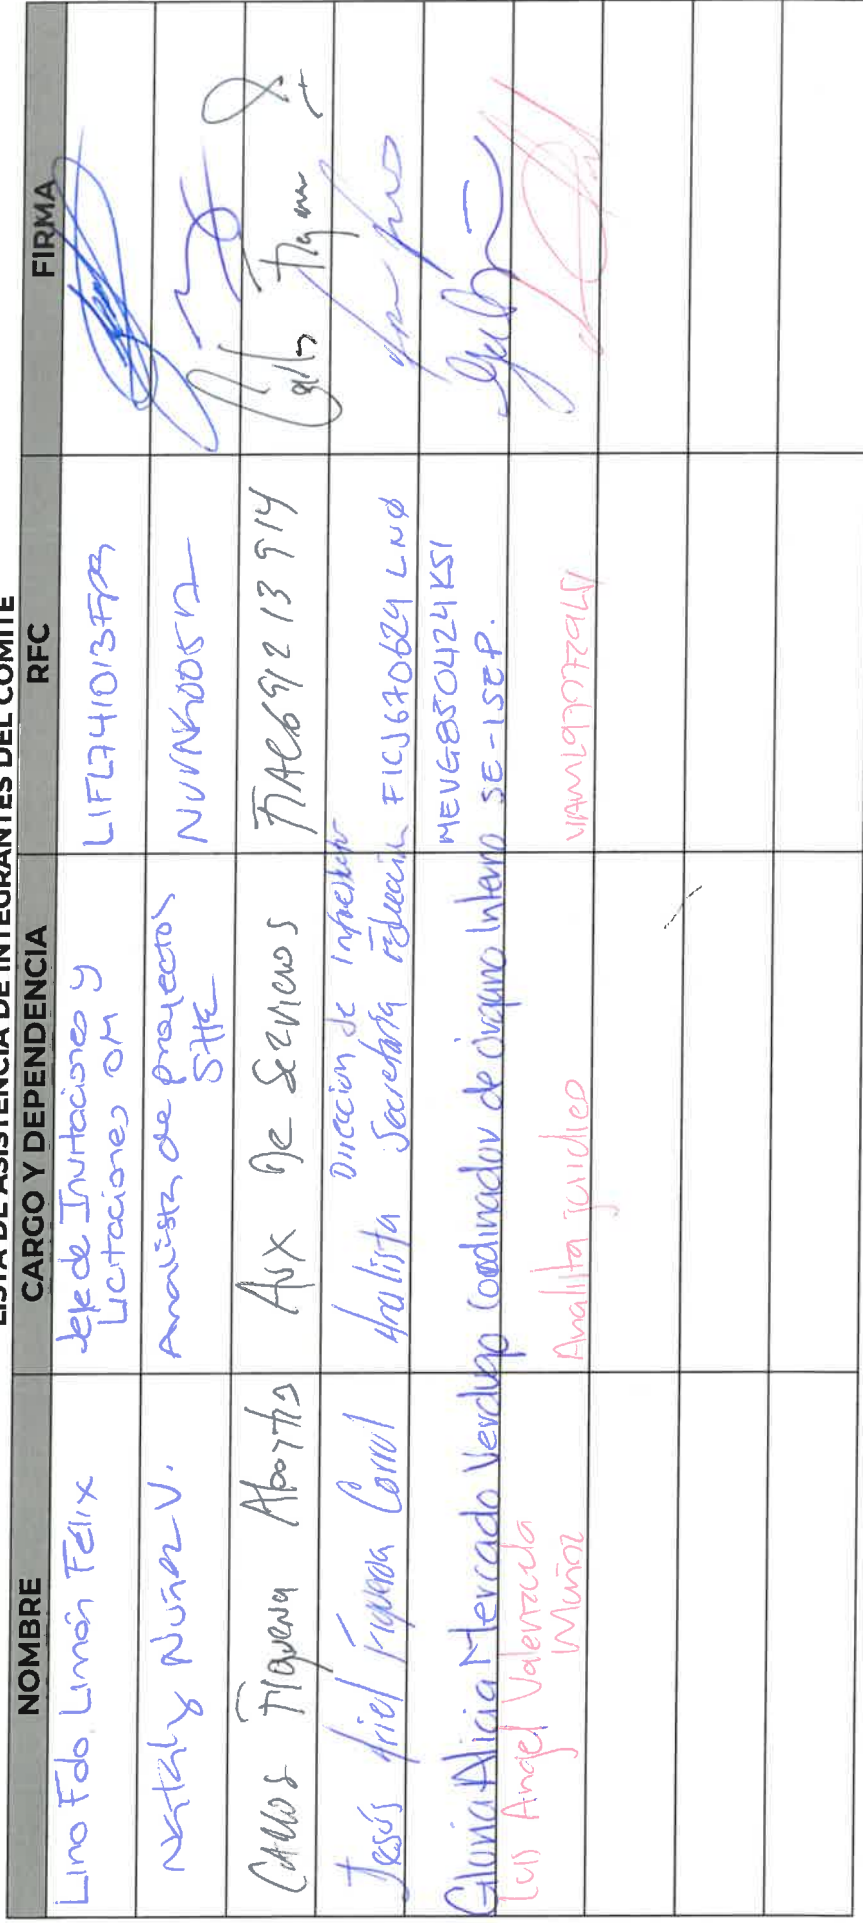 LISTA DE ASISTENCIA DE INTEGRANTES DEL COMITÉ
NOMBRE CARGO Y DEPENDENCIA RFC FIRMA
Lino Fdo. Limón Félix
Jefe de Invitaciones y
Licitaciones OM
LIFL741013
Nataly Núñez V.
Analista de proyectos
Carlos Figueroa Aboytia
Aux De Servicios
FIAC691213914
Jesús Ariel Figueroa Corral
Analista
Dirección de
Secretaría Educación
FICJ670624LN0
Gloria Alicia Mercado Verdugo
Coordinador de órgano Interno SE-ISEP.
MEVG850424KS1
Luis Angel Valenzuela
Muñoz
Analista jurídico